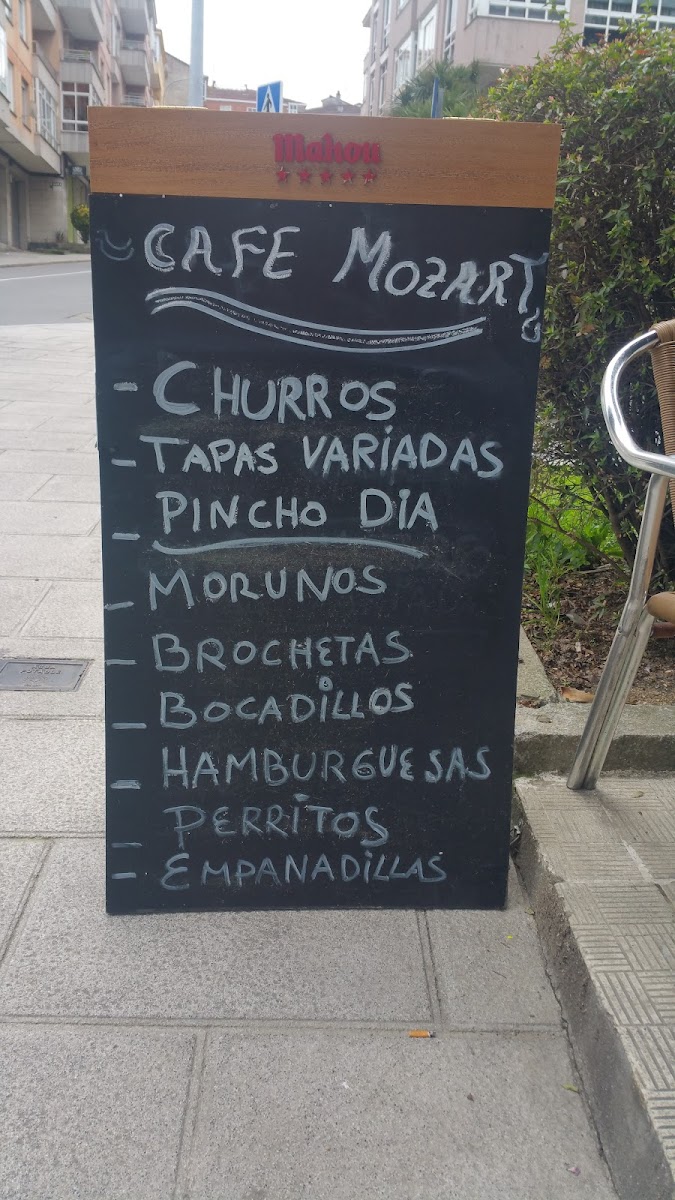 Mahou
CAFE MOZART
- CHURROS
- TAPAS VARIADAS
- PINCHO DIA
- MORUNOS
- BROCHETAS
- BOCADILLOS
- HAMBURGUESAS
- PERRITOS
- EMPANADILLAS